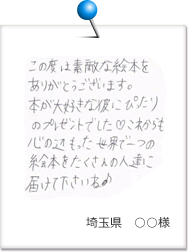 この度は素敵な絵本を
ありがとうございます。
本が大好きな彼にぴったり
のプレゼントでした♡これからも
心の込もった世界で一つの
絵本をたくさんの人達に
届けて下さいね♪
埼玉県　○○様